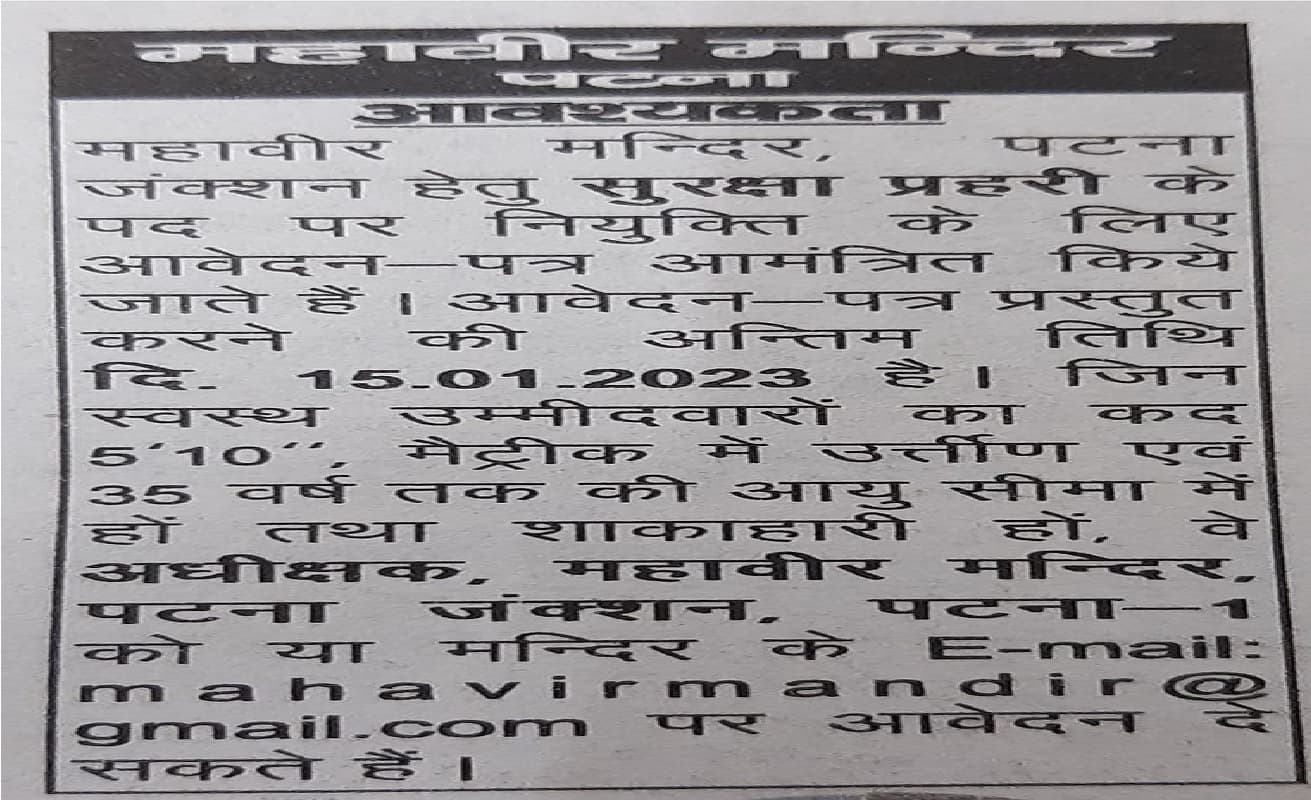 महावीर मन्दिर
पटना
आवश्यकता
महावीर मन्दिर, पटना
जंक्शन हेतु सुरक्षा प्रहरी के
पद पर नियुक्ति के लिए
आवेदन–पत्र आमंत्रित किये
जाते हैं । आवेदन–पत्र प्रस्तुत
करने की अन्तिम तिथि
दि. 15.01.2023 है । जिन
स्वस्थ उम्मीदवारों का कद
5‘10‘‘, मैट्रीक में उर्त्तीण एवं
35 वर्ष तक की आयु सीमा में
हों तथा शाकाहारी हों, वे
अधीक्षक, महावीर मन्दिर,
पटना जंक्शन, पटना–1
को या मन्दिर के E-mail:
mahavirmandir@
gmail.com पर आवेदन दे
सकते हैं ।